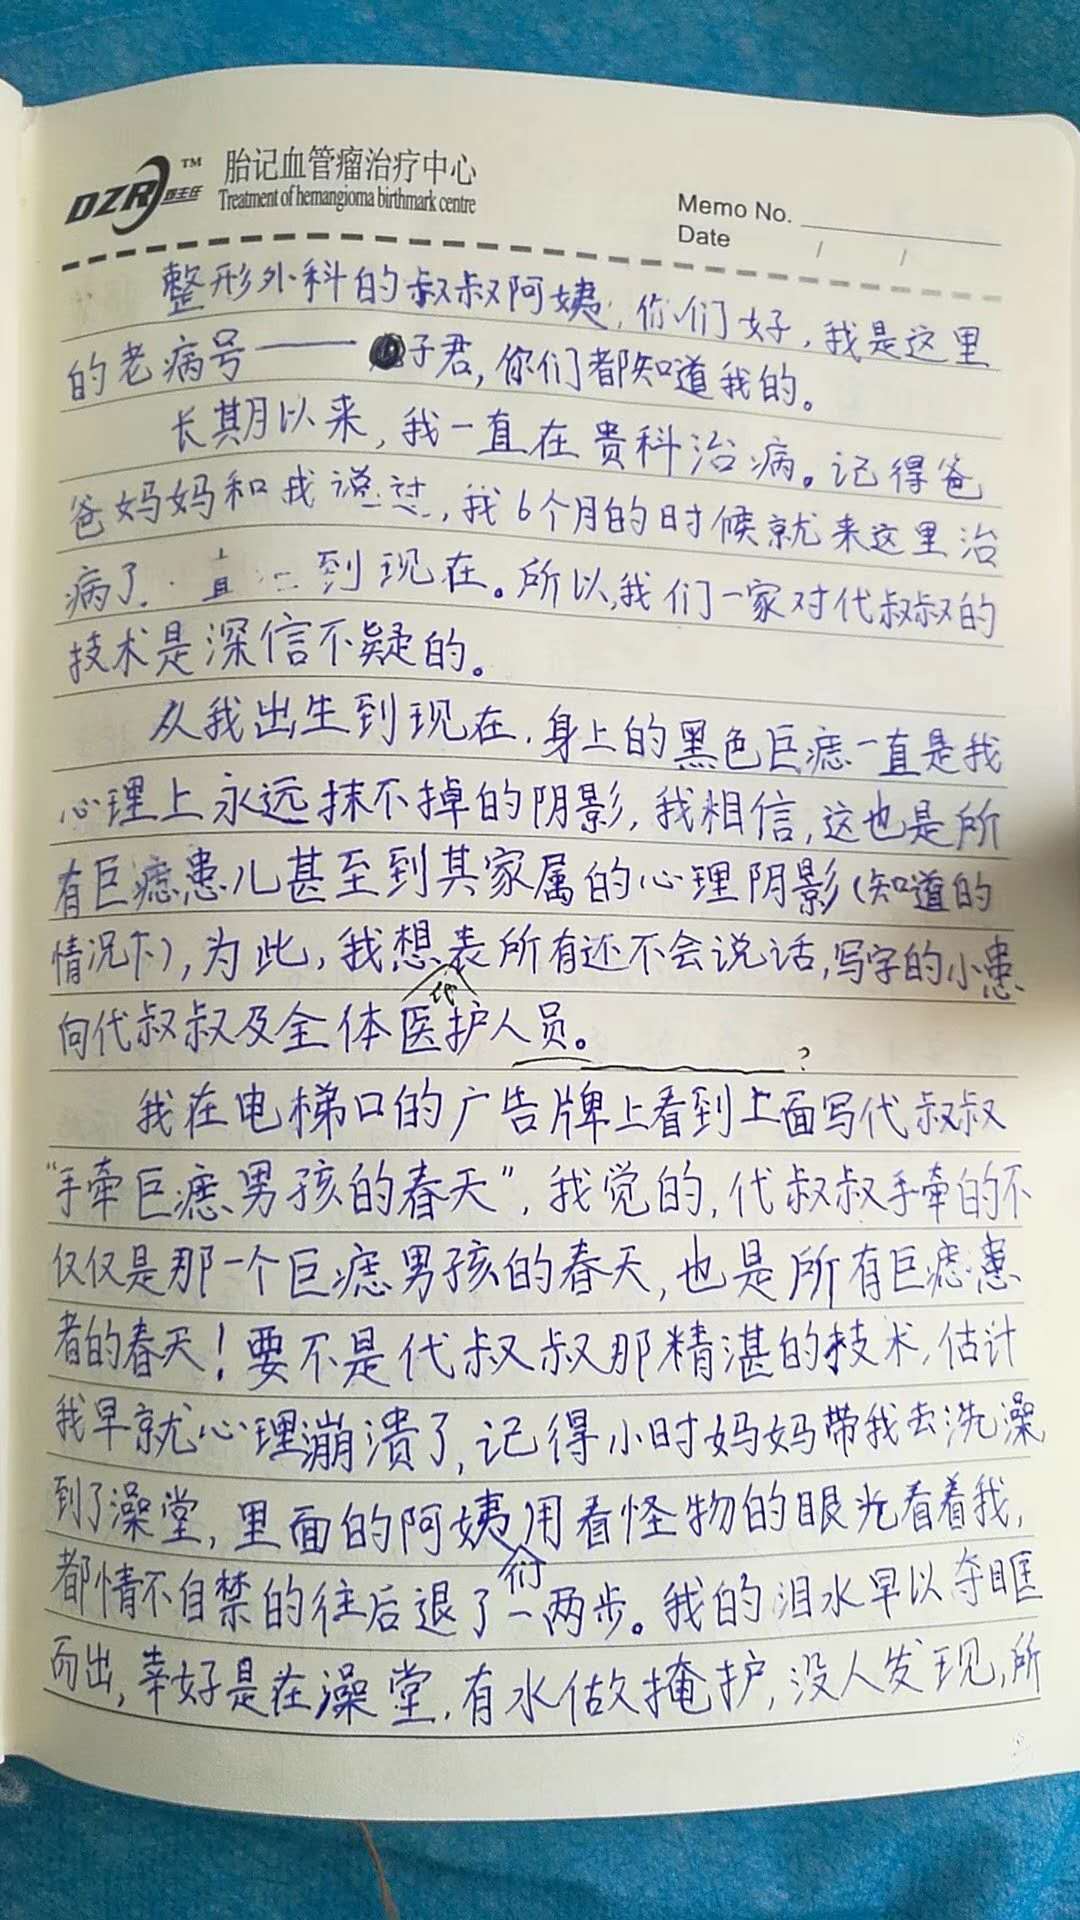 DZR 戴主任 TM 胎记血管瘤治疗中心
Treatment of hemangioma birthmark centre
Memo No.
Date / /
整形外科的叔叔阿姨，你们好，我是这里
的老病号——子君，你们都知道我的。
长期以来，我一直在贵科治病。记得爸
爸妈妈和我说过，我6个月的时候就来这里治
病了.直到现在。所以,我们一家对代叔叔的
技术是深信不疑的。
从我出生到现在，身上的黑色巨痣一直是我
心理上永远抹不掉的阴影，我相信，这也是所
有巨痣患儿甚至到其家属的心理阴影(知道的
情况下)，为此，我想代表所有还不会说话，写字的小患
向代叔叔及全体医护人员。
?
我在电梯口的广告牌上看到上面写代叔叔
“手牵巨痣男孩的春天”，我觉的，代叔叔手牵的不
仅仅是那一个巨痣男孩的春天，也是所有巨痣患
者的春天！要不是代叔叔那精湛的技术，估计
我早就心理崩溃了，记得小时妈妈带我去洗澡
到了澡堂，里面的阿姨们用看怪物的眼光看着我，
都情不自禁的往后退了一两步。我的泪水早以夺眶
而出，幸好是在澡堂，有水做掩护，没人发现，所